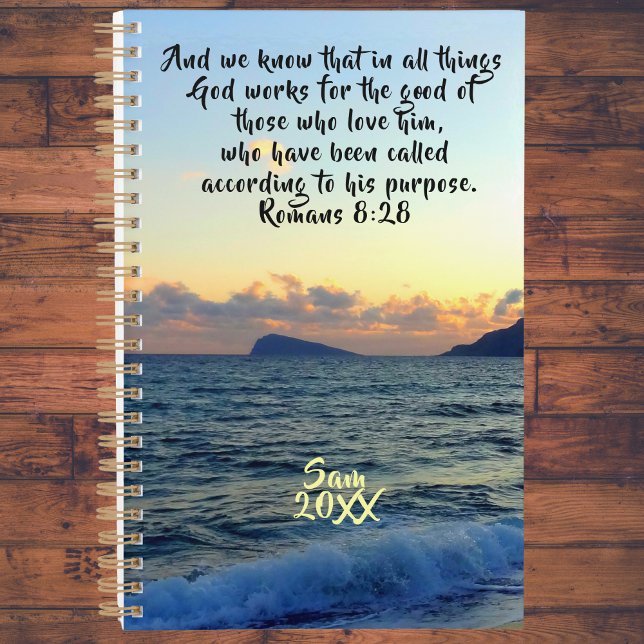 And we know that in all things
God works for the good of
those who love him,
who have been called
according to his purpose.
Romans 8:28
Sam
20XX